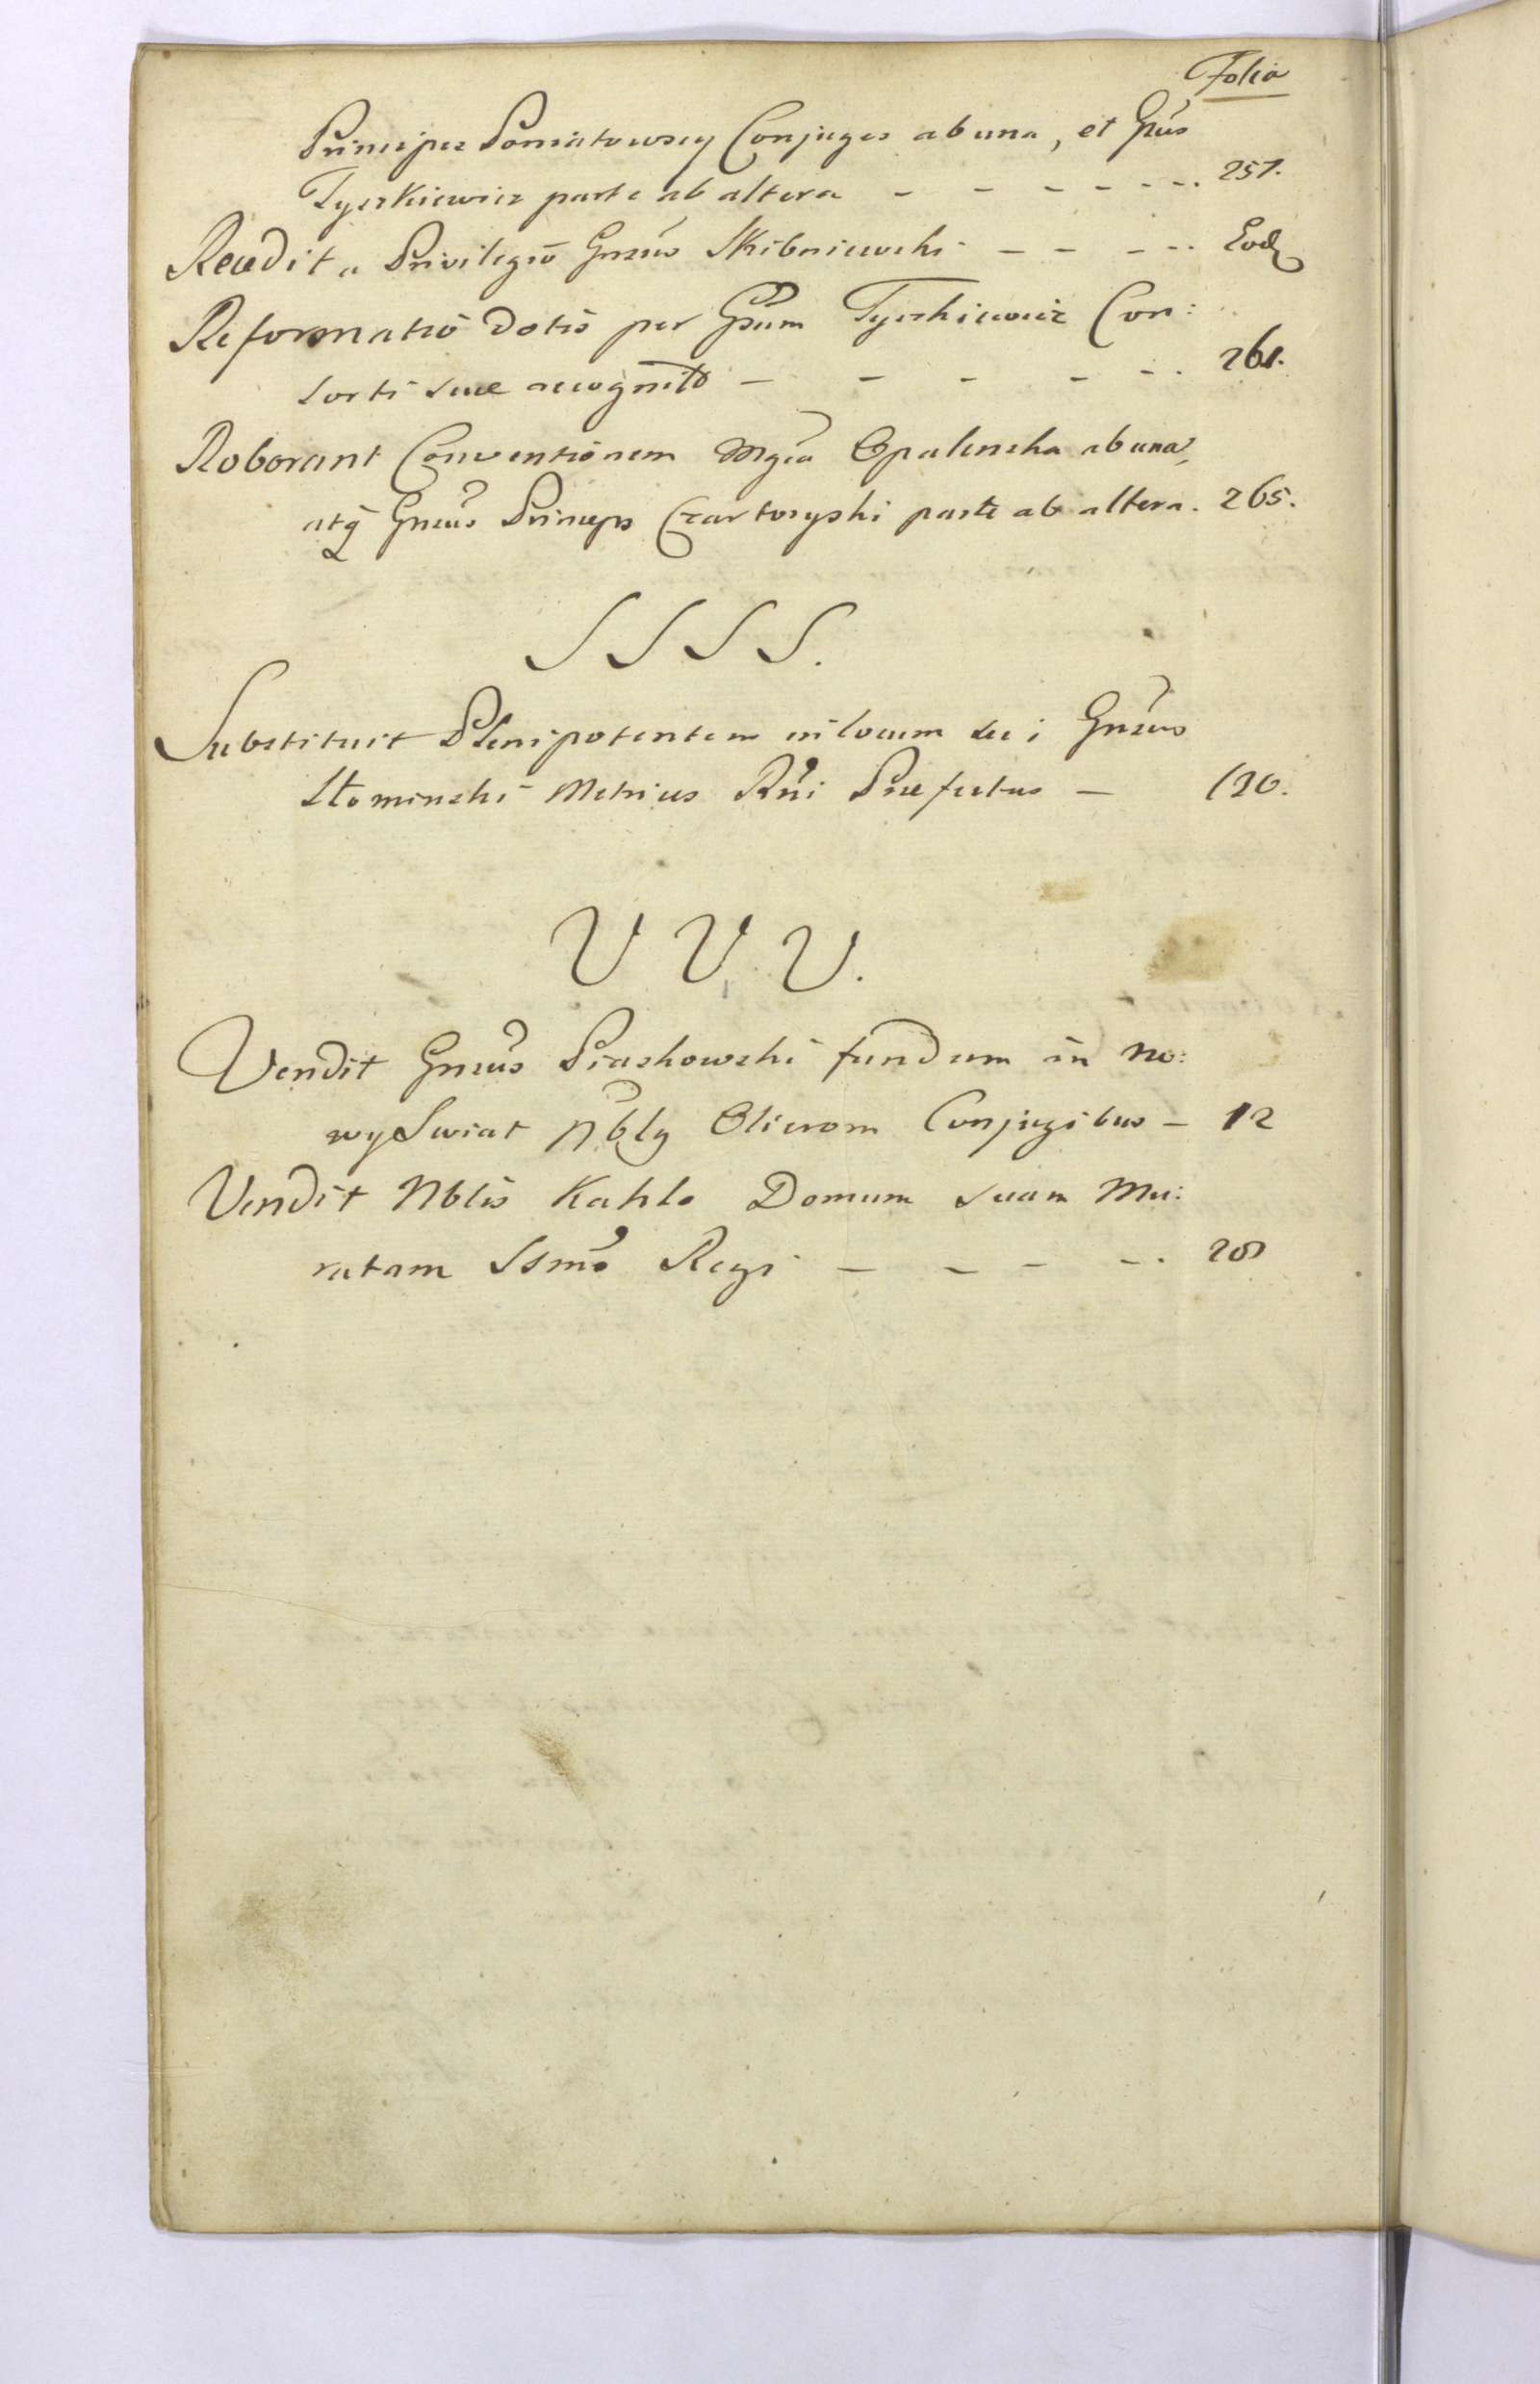 Folia
Principes Poniatowscy Conjuges ab una, et Gnus
Tyszkiewicz parte ab altera - - - - - - . 257.
Recedit a Privilegio Gnsus Skibniewski - - - - . Eod
Reformatio Dotis per Gsum Tyszkiewicz Con:
sorti suae recognita - - - - - . 261.
Roborant Conventionem Mgca Opalenska ab una,
atq Gnsus Princeps Czartoryski parte ab altera. 265.
S S S S.
Substituit Plenipotentem in locum sui Gnsus
Słominski Metrices Rni Praefectus - 120.
V V V.
Vendit Gnsus Piaskowski fundum in No:
wy Swiat Nbly Olierom Conjugibus - 12
Vendit Nblis Kahlo Domum suam Mu:
ratam Ssmo Regi - - - - . 20